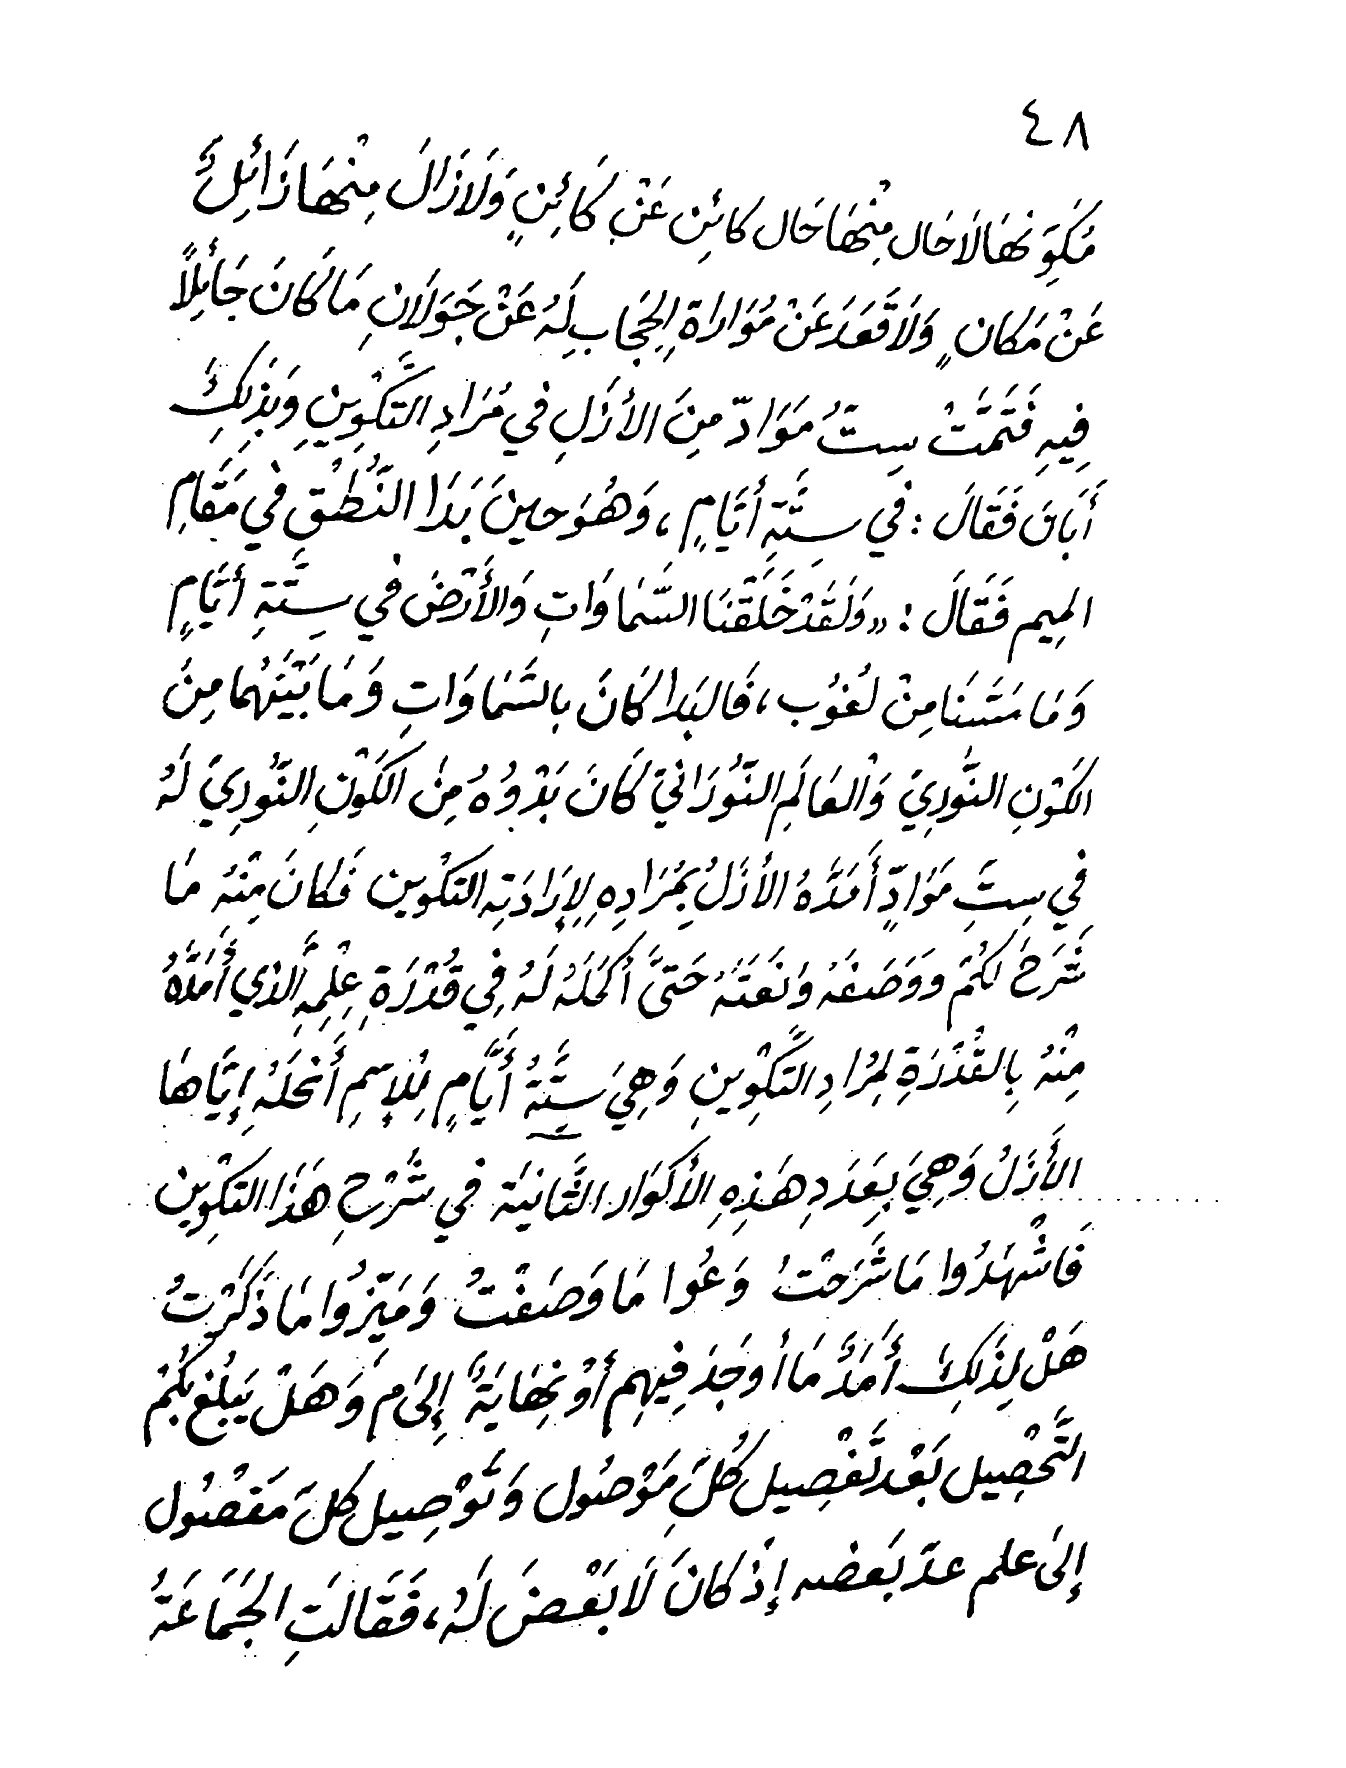 ٤٨
مُكَوِّنهَا لَا حَال مِنْهَا حَال كائِن عَنْ كَائِنٍ وَلَا زَالَ مِنْهَا زَائِلٌ
عَنْ مَكان ٍ وَلَا قَعَدَ عَنْ مُوَارَاةِ الحِجَابِ لَهُ عَنْ جَوَلَانِ مَا كَانَ جَائِلًا
فِيهِ فَتَمَّتْ سِتّ مَوَادّ مِنَ الأَزَلِ في مُرَادِ التَّكْوِينِ وَبِذَلِكَ
أَبَانَ فَقَالَ : في سِتَّةِ أَيَّامٍ ، وَهُوَ حينَ بَدَا النُّطْقِ في مَقَامِ
الميم فَقَالَ : « وَلَقَدْ خَلَقْنَا السَّمَاوَاتِ وَالأَرْضَ في سِتَّةِ أَيَّامٍ
وَمَا مَسَّنَا مِنْ لُغُوُب ، فَالبَدا كَانَ بِالسَّمَاوَاتِ وَمَا بَيْنَهُما مِنَ
الكَوْنِ النُّورِيِّ وَالْعَالَمِ النُّورَانيِّ كَانَ بَدْوُهُ مِنَ الكَوْنِ النُّورِيِّ لَهُ
فِي سِتِّ مَوَادٍّ أَمَدَّهُ الأَزَلُ بِمُرَادِهِ لِإِرَادَتِهِ التكْوين فَكانَ مِنْهُ مَا
شَرَحَ لَكُمْ وَوَصَفَهُ وَنَعَتَهُ حَتىَّ أَكْمَلَهُ لَهُ فِي قُدْرَةِ عِلْمِهِ الَّذي أَمَدَّهُ
مِنْهُ بِالقُدْرَةِ لِمُرَادِ التَّكْوِينِ وَهِيَ سِتَّةُ أَيَّامٍ لِلْإِسْمِ أَنْحَلَهُ إِيَّاهَا
الأَزَلُ وَهِيَ بِعَدَدِ هَذِهِ الأَكْوَار الثَّانِيَة في شَرْحِ هَذَا التَكْوِين
فَاشْهَدُوا مَا شَرَحْتُ وَعُوا مَا وَصَفْتُ وَمَيِّزُوا مَا ذَكَرْتُ
هَلْ لِذَلِكَ أَمَدٌ مَا أوجَدَ فِيهِم أَوْ نِهَايَةٌ إِلىَ م وَهَلْ يَبْلُغ بِكُمْ
التَّحْصِيل بَعْد تَفْصِيل كُلِّ مَوْصُول وَتَوْصِيل كلِّ مَفْصُول
إِلىَ علم عدّ بَعَضه إِذْ كانَ لَا بَعْضَ لَهُ ، فَقَالَتِ الجَمَاعَةُ